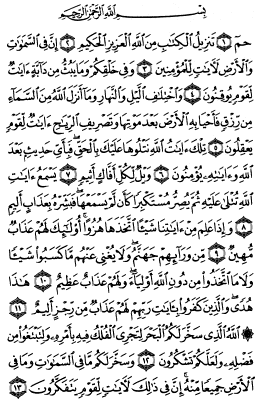 بِسْمِ اللَّهِ الرَّحْمَٰنِ الرَّحِيمِ
حمٓ ١ تَنزِيلُ الْكِتَابِ مِنَ اللَّهِ الْعَزِيزِ الْحَكِيمِ ٢ إِنَّ فِي السَّمَاوَاتِ
وَالْأَرْضِ لَآيَاتٍ لِلْمُؤْمِنِينَ ٣ وَفِي خَلْقِكُمْ وَمَا يَبُثُّ مِن دَابَّةٍ آيَاتٌ
لِقَوْمٍ يُوقِنُونَ ٤ وَاخْتِلَافِ اللَّيْلِ وَالنَّهَارِ وَمَا أَنزَلَ اللَّهُ مِنَ السَّمَاءِ
مِن رِّزْقٍ فَأَحْيَا بِهِ الْأَرْضَ بَعْدَ مَوْتِهَا وَتَصْرِيفِ الرِّيَاحِ آيَاتٌ لِقَوْمٍ
يَعْقِلُونَ ٥ تِلْكَ آيَاتُ اللَّهِ نَتْلُوهَا عَلَيْكَ بِالْحَقِّ فَبِأَيِّ حَدِيثٍ بَعْدَ
اللَّهِ وَآيَاتِهِ يُؤْمِنُونَ ٦ وَيْلٌ لِكُلِّ أَفَّاكٍ أَثِيمٍ ٧ يَسْمَعُ آيَاتِ
اللَّهِ تُتْلَىٰ عَلَيْهِ ثُمَّ يُصِرُّ مُسْتَكْبِرًا كَأَن لَّمْ يَسْمَعْهَا فَبَشِّرْهُ بِعَذَابٍ أَلِيمٍ
٨ وَإِذَا عَلِمَ مِنْ آيَاتِنَا شَيْئًا اتَّخَذَهَا هُزُوًا أُولَٰئِكَ لَهُمْ عَذَابٌ
مُّهِينٌ ٩ مِّن وَرَائِهِمْ جَهَنَّمُ وَلَا يُغْنِي عَنْهُم مَّا كَسَبُوا شَيْئًا
وَلَا مَا اتَّخَذُوا مِن دُونِ اللَّهِ أَوْلِيَاءَ وَلَهُمْ عَذَابٌ عَظِيمٌ ١٠ هَٰذَا
هُدًى وَالَّذِينَ كَفَرُوا بِآيَاتِ رَبِّهِمْ لَهُمْ عَذَابٌ مِّن رِّجْزٍ أَلِيمٌ ١١
۞ اللَّهُ الَّذِي سَخَّرَ لَكُمُ الْبَحْرَ لِتَجْرِيَ الْفُلْكُ فِيهِ بِأَمْرِهِ وَلِتَبْتَغُوا مِن
فَضْلِهِ وَلَعَلَّكُمْ تَشْكُرُونَ ١٢ وَسَخَّرَ لَكُم مَّا فِي السَّمَاوَاتِ وَمَا فِي
الْأَرْضِ جَمِيعًا مِّنْهُ إِنَّ فِي ذَٰلِكَ لَآيَاتٍ لِّقَوْمٍ يَتَفَكَّرُونَ ١٣